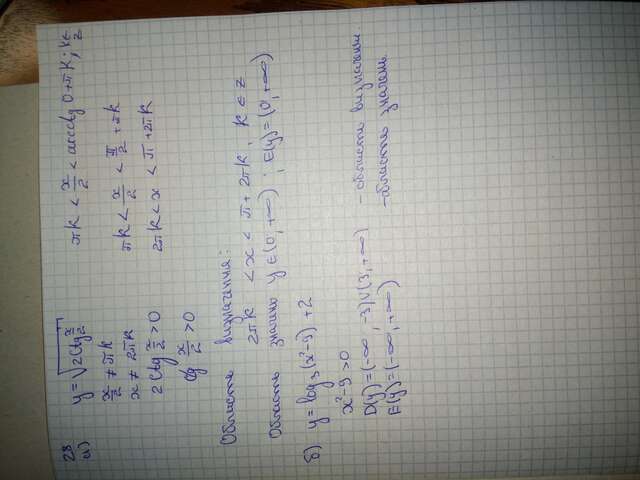 28
а) y = √(2ctg x/2)
x/2 ≠ πk
x ≠ 2πk
2ctg x/2 > 0
ctg x/2 > 0
πk < x/2 < arcctg 0 + πk; k ∈ z
πk < x/2 < π/2 + πk
2πk < x < π + 2πk
Область визначення:
2πk < x < π + 2πk, k ∈ z
Область значень y ∈ (0, +∞) ; E(y) = (0, +∞)
б) y = log₃(x² - 9) + 2
x² - 9 > 0
D(y) = (-∞, -3)∪(3, +∞) - область визначення.
E(y) = (-∞, +∞) - область значень